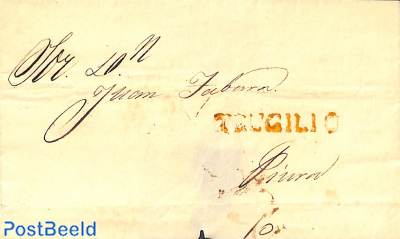 Sr. Dn
Juan Tabara.
TRUGILIO
Piura
PostBeeld